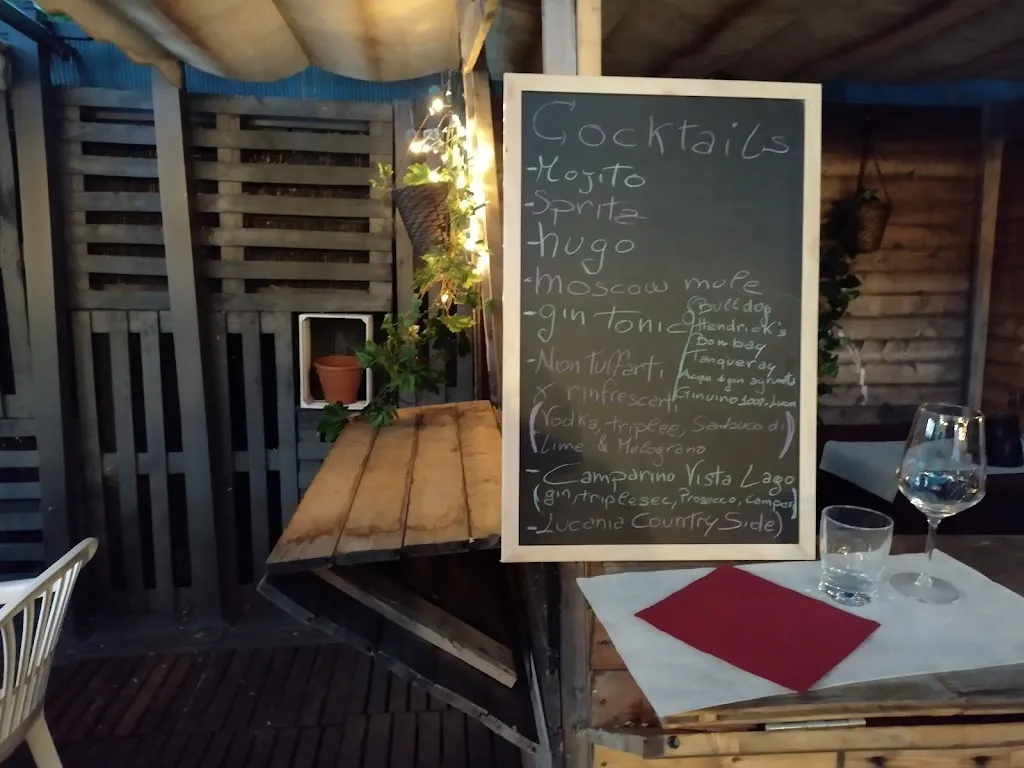 Cocktails
- Mojito
- Spritz
- hugo
- moscow mule
- gin Tonic
Bulldop
Hendrick's
Bombay
Tanqueray
Acqua di gin agrumata
Ginuino 100% Lucan
- Non Tuffarti,
x rinfrescarti
(Vodka, triplee, Sambuco di
Lime & Melograno)
- Camparino Vista Lago
(gin, triplesec, Prosecco, Camper)
- Lucania Country Side)